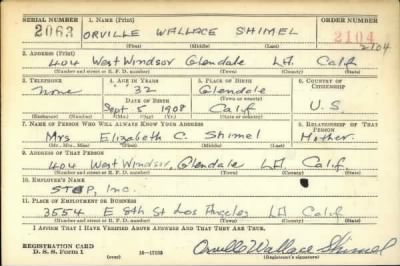 SERIAL NUMBER 1. NAME (Print) ORDER NUMBER
2063 ORVILLE WALLACE SHIMEL 2104
(First) (Middle) (Last) 2104
2. ADDRESS (Print)
404 West Windsor Glendale LA Calif
(Number and street or R. F. D. number) (Town) (County) (State)
3. TELEPHONE 4. AGE IN YEARS 5. PLACE OF BIRTH 6. COUNTRY OF CITIZENSHIP
none 32 Glendale
DATE OF BIRTH (Town or county)
Sept 5 1908 Calif U.S.
(Exchange) (Number) (Mo.) (Day) (Yr.) (State or country)
7. NAME OF PERSON WHO WILL ALWAYS KNOW YOUR ADDRESS 8. RELATIONSHIP OF THAT PERSON
Mrs Elizabeth C. Shimel Mother
(Mr., Mrs., Miss) (First) (Middle) (Last)
9. ADDRESS OF THAT PERSON
404 West Windsor, Glendale LA Calif
(Number and street or R. F. D. number) (Town) (County) (State)
10. EMPLOYER'S NAME
Inc.
11. PLACE OF EMPLOYMENT OR BUSINESS
3554 E 8th St Los Angeles LA Calif
(Number and street or R. F. D. number) (Town) (County) (State)
I AFFIRM THAT I HAVE VERIFIED ABOVE ANSWERS AND THAT THEY ARE TRUE.
REGISTRATION CARD
D. S. S. Form 1 (over) 16—17105 Orville Wallace Shimel
(Registrant's signature)